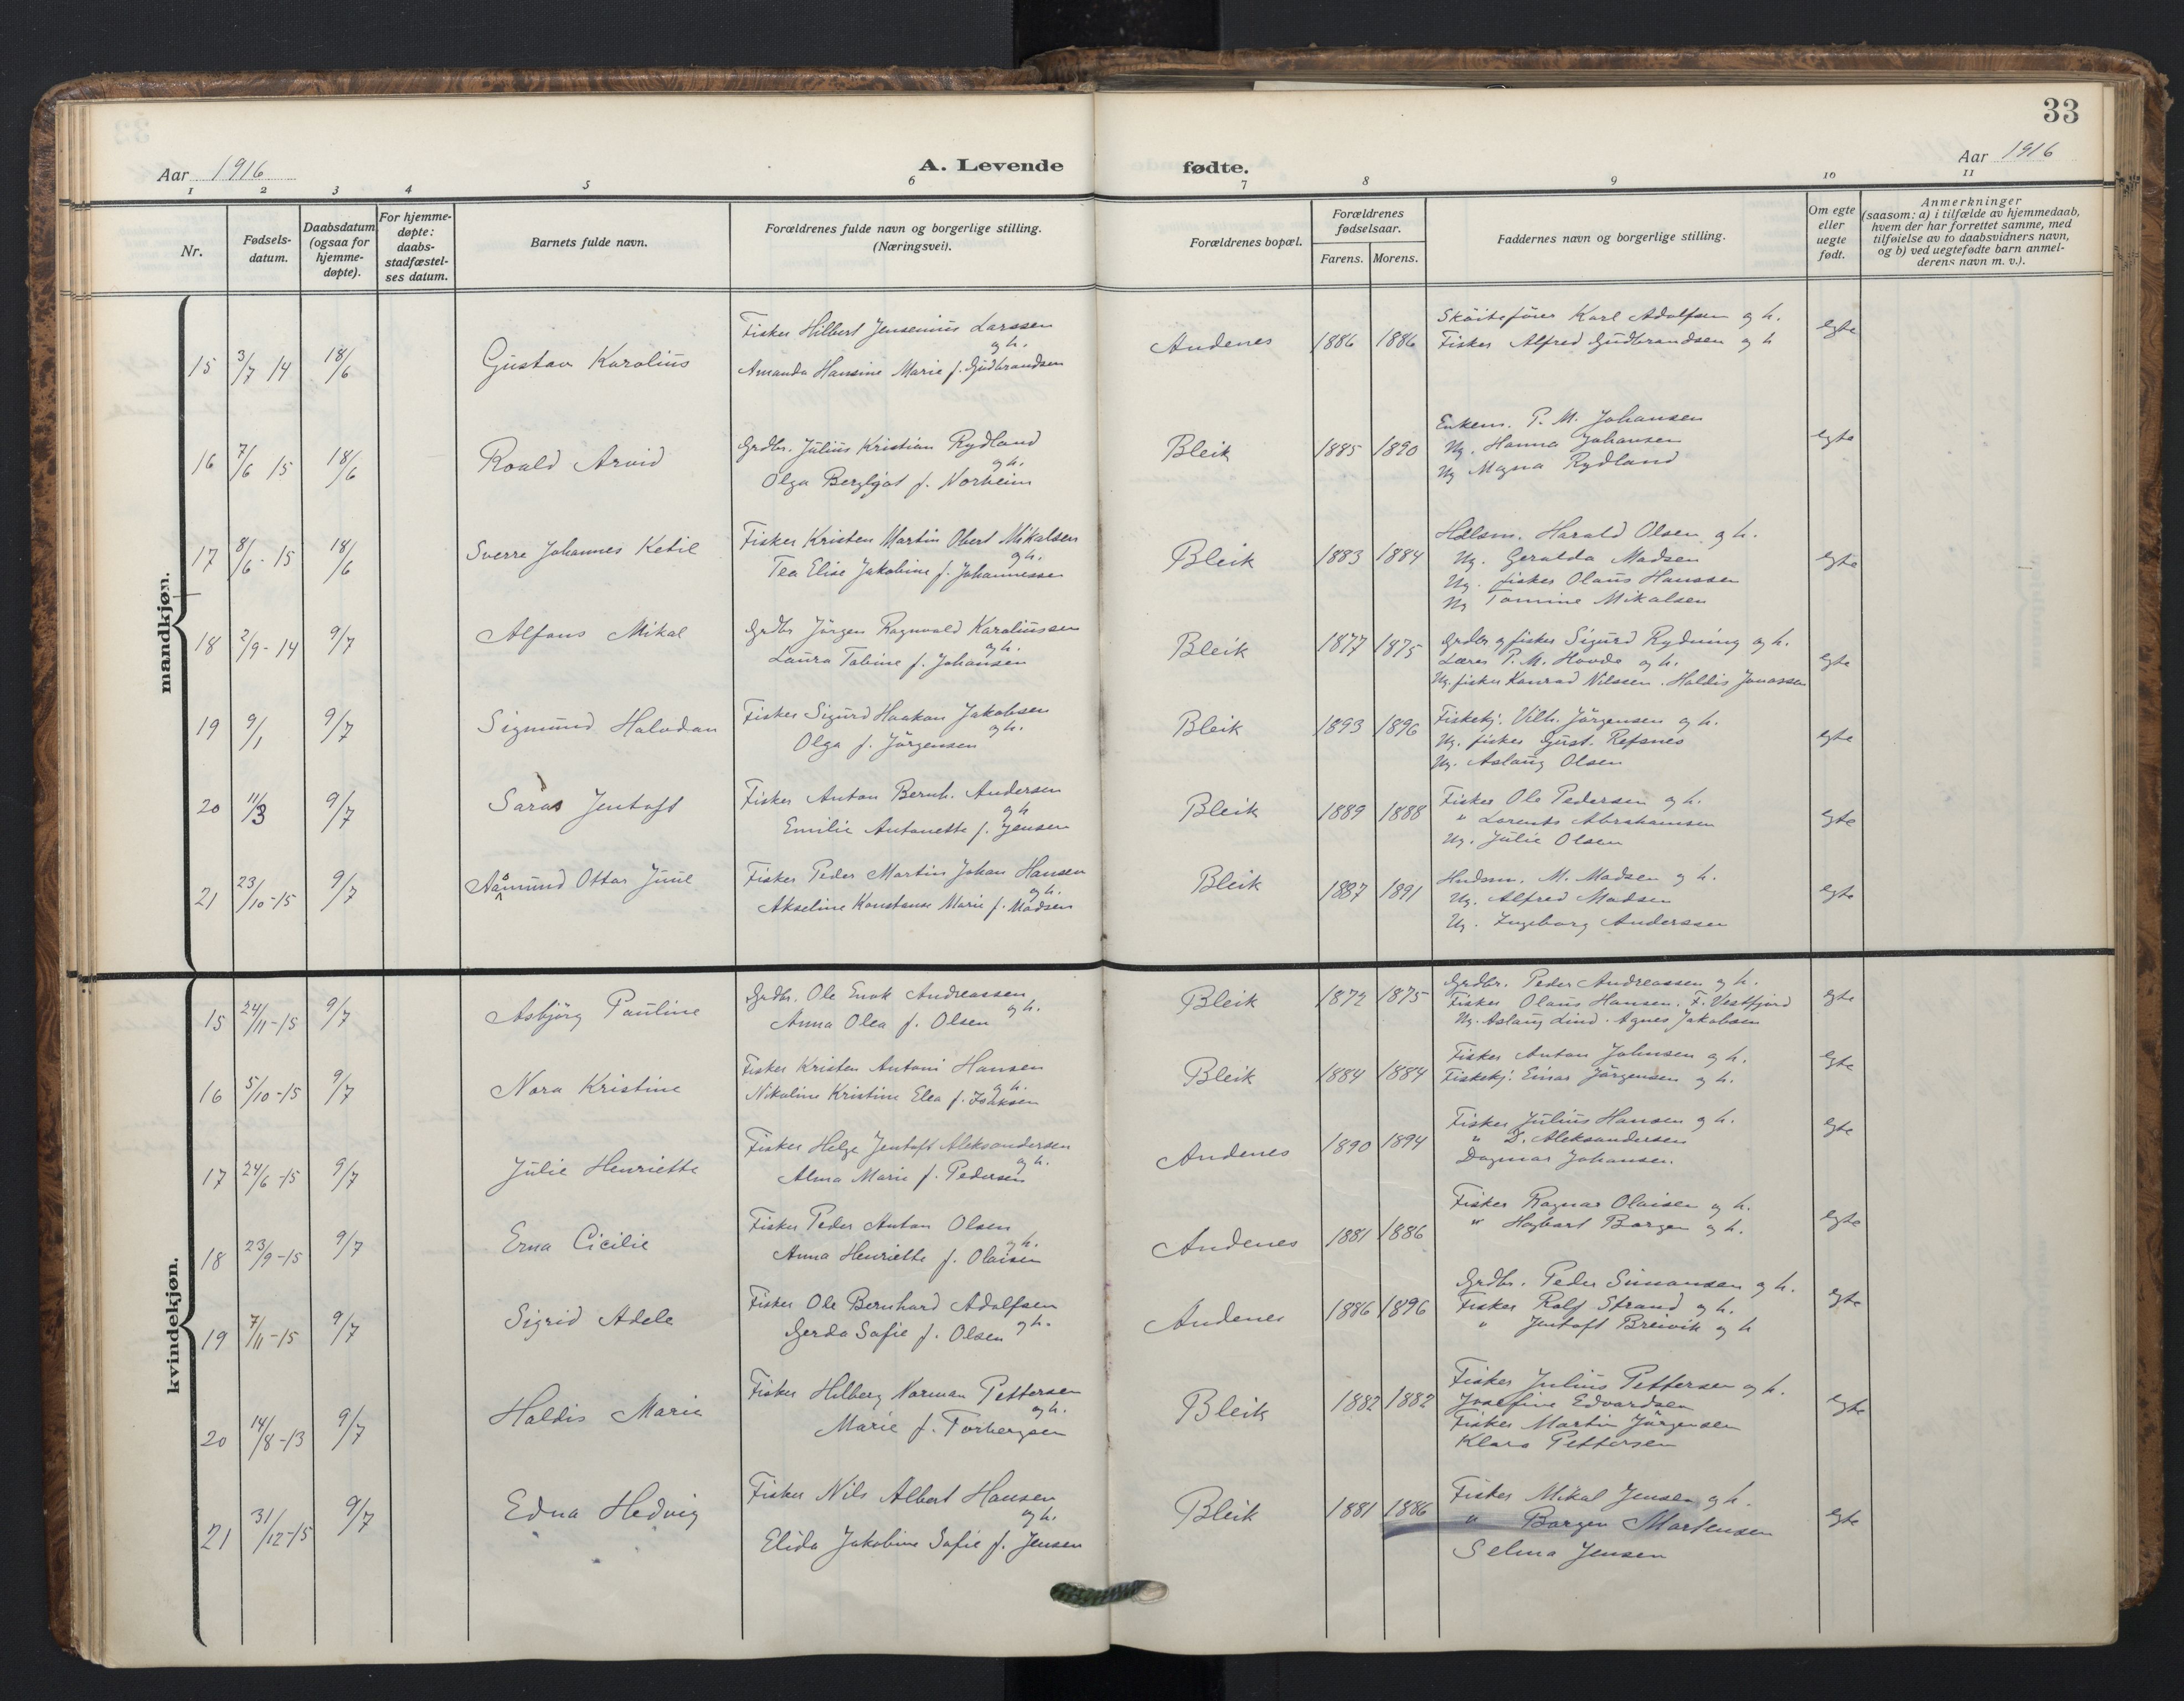 33
Aar 1916
A. Levende fødte.
Aar 1916
1 2 3 4 5 6 7 8 9 10 11
Nr.
Fødsels-
datum.
Daabsdatum
(ogsaa for
hjemme-
døpte).
For hjemme-
døpte:
daabs-
stadfæstel-
ses datum.
Barnets fulde navn.
Forældrenes fulde navn og borgerlige stilling.
(Næringsvei).
Forældrenes bopæl.
Forældrenes
fødselsaar.
Farens. Morens.
Faddernes navn og borgerlige stilling.
Om egte
eller
uegte
født.
Anmerkninger
(saasom: a) i tilfælde av hjemmedaab,
hvem der har forrettet samme, med
tilføielse av to daabsvidners navn,
og b) ved uegtefødte barn anmel-
derens navn m. v.).
mandkjøn.
15 3/7 14 18/6 Gustav Karolius
Fisker Hilbert Jensenius Larssen
og h.
Amanda Hansine Marie f. Gudbrandsen
Andenes 1886 1886
Skøitefører Karl Adolfsen og h.
Fisker Alfred Gudbrandsen og h
egte
16 7/6 15 18/6 Roald Arvid
Grdbr. Julius Kristian Rydland
og h.
Olga Bergljot f. Norheim
Bleik 1885 1890
Enkem. P. M. Johansen
Ug. Hanna Johansen
Ug Magna Rydland
egte
17 8/6 - 15 18/6 Sverre Johannes Ketil
Fisker Kristen Martin Obert Mikalsen
og h.
Tea Elise Jakobine f. Johannessen
Bleik 1883 1884
Hdlsm. Harald Olsen og h.
Ug. Geralda Madsen
Ug. fisker Olaus Hanssen
Ug Tomine Mikalsen
egte
18 2/9 - 14 9/7 Alfons Mikal
Grdbr Jørgen Ragnvald Karoliussen
og h.
Laura Tobine f. Johansen
Bleik 1877 1875
Grdbr og fisker Sigurd Rydning og h.
Lærer P. M. Hovde og h.
Ug. fisker Konrad Nilssen. Haldis Jonassen
egte
19 9/1 9/7 Sigmund Halvdan
Fisker Sigurd Haakon Jakobsen
og h.
Olga f. Jørgensen
Bleik 1893 1896
Fiskekj. Vilh. Jørgensen og h.
Ug. fisker Gust. Refsnes
Ug. Aslaug Olsen
egte
20 11/3 9/7 Saras Jentoft
Fisker Anton Bernh. Andersen
og h
Emilie Antonette f. Jensen
Bleik 1889 1888
Fisker Ole Pedersen og h.
" Lorents Abrahamsen
Ug. Julie Olsen
egte
21 23/10-15 9/7 Aamund Ottar Juul
Fisker Peder Martin Johan Hansen
og h.
Akseline Konstanse Marie f. Madsen
Bleik 1887 1891
Hndsm. M. Madsen og h.
Ug. Alfred Madsen
Ug. Ingeborg Anderssen
egte
kvindekjøn.
15 24/11-15 9/7 Asbjørg Pauline
Grdbr. Ole Enok Andreassen
og h.
Anna Olea f. Olsen
Bleik 1872 1875
Grdbr. Peder Andreassen og h.
Fisker Olaus Hansen. F. Vestfjord
Ug. Aslaug Lind. Agnes Jakobsen
egte
16 5/10-15 9/7 Nora Kristine
Fisker Kristen Antoni Hansen
og h.
Nikoline Kristine Elea f. Isaksen
Bleik 1884 1884
Fisker Anton Johnsen og h.
Fiskekj. Einar Jørgensen og h.
egte
17 24/6-15 9/7 Julie Henriette
Fisker Helge Jentoft Aleksandersen
og h.
Alma Marie f. Pedersen
Andenes 1890 1894
Fisker Julius Hansen og h.
" D. Aleksandersen
Dagmar Johansen.
egte
18 23/9-15 9/7 Erna Cicilie
Fisker Peder Anton Olsen
og h.
Anna Henriette f. Olaisen
Andenes 1881 1886
Fisker Ragnar Olaisen og h.
" Hagbart Borgen og h.
egte
19 7/11-15 9/7 Sigrid Adele
Fisker Ole Bernhard Adolfsen
og h.
Gerda Sofie f. Olsen
Andenes 1886 1896
Grdbr. Peder Simonsen og h.
Fisker Rolf Strand og h.
" Jentoft Breivik og h
egte
20 14/8-13 9/7 Haldis Marie
Fisker Hilberg Norman Pettersen
og h.
Marie f. Torbergsen
Bleik 1882 1882
Fisker Julius Pettersen og h.
Josefine Edvardsen
Fisker Martin Jørgensen
Klara Pettersen
egte
21 31/12-15 9/7 Edna Hedvig
Fisker Nils Albert Hansen
og h.
Elida Jakobine Sofie f. Jensen
Bleik 1881 1886
Fisker Mikal Jensen og h.
" Borgen Martensen
Selma Jensen
egte